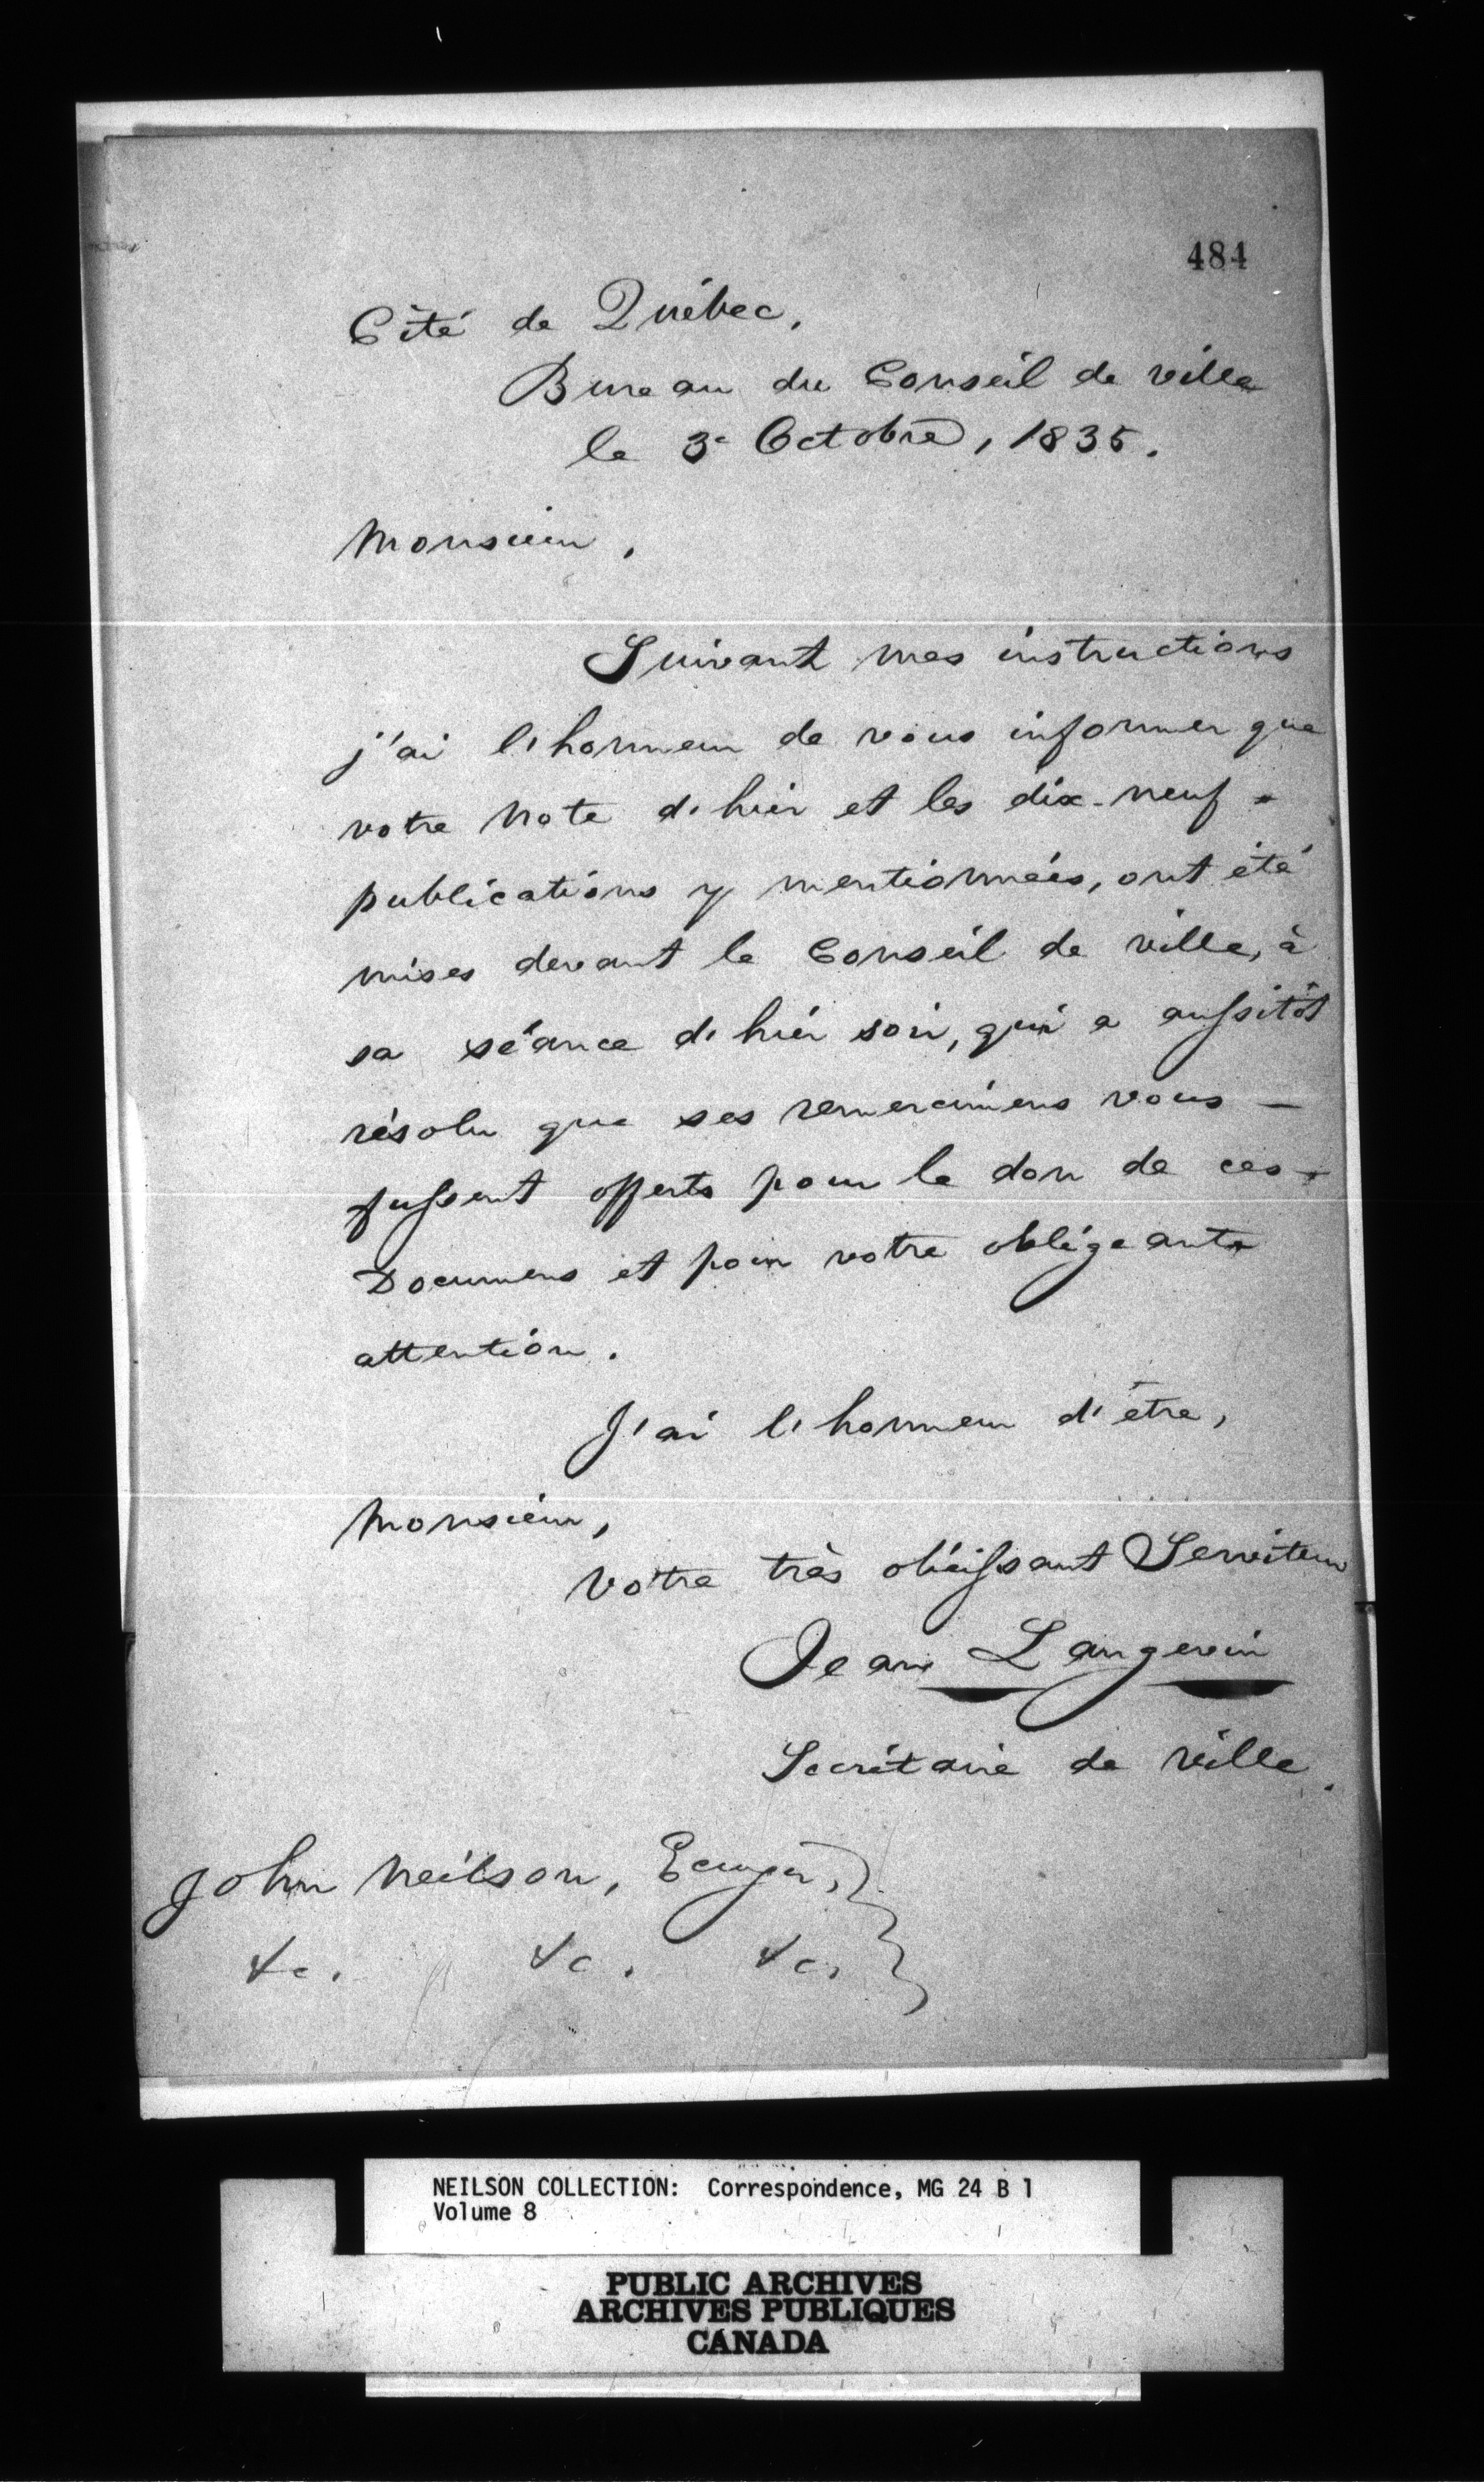 484
Cité de Québec,
Bureau du Conseil de ville
le 3e Octobre, 1835.
Monsieur,
Suivant mes instructions
j'ai l'honneur de vous informer que
votre note d'hier et les dix-neuf -
publications y mentionnées, ont été
mises devant le Conseil de ville, à
sa séance d'hier soir, qui a aussitôt
résolu que ses remercimens vous -
fussent offerts pour le don de ces -
Documens et pour votre obligeante
attention.
J'ai l'honneur d'être,
Monsieur,
Votre très obéissant Serviteur
Jean Langevin
Secrétaire de ville.
John Neilson, Ecuyer,
&c. &c. &c.
NEILSON COLLECTION: Correspondence, MG 24 B 1
Volume 8
PUBLIC ARCHIVES
ARCHIVES PUBLIQUES
CANADA